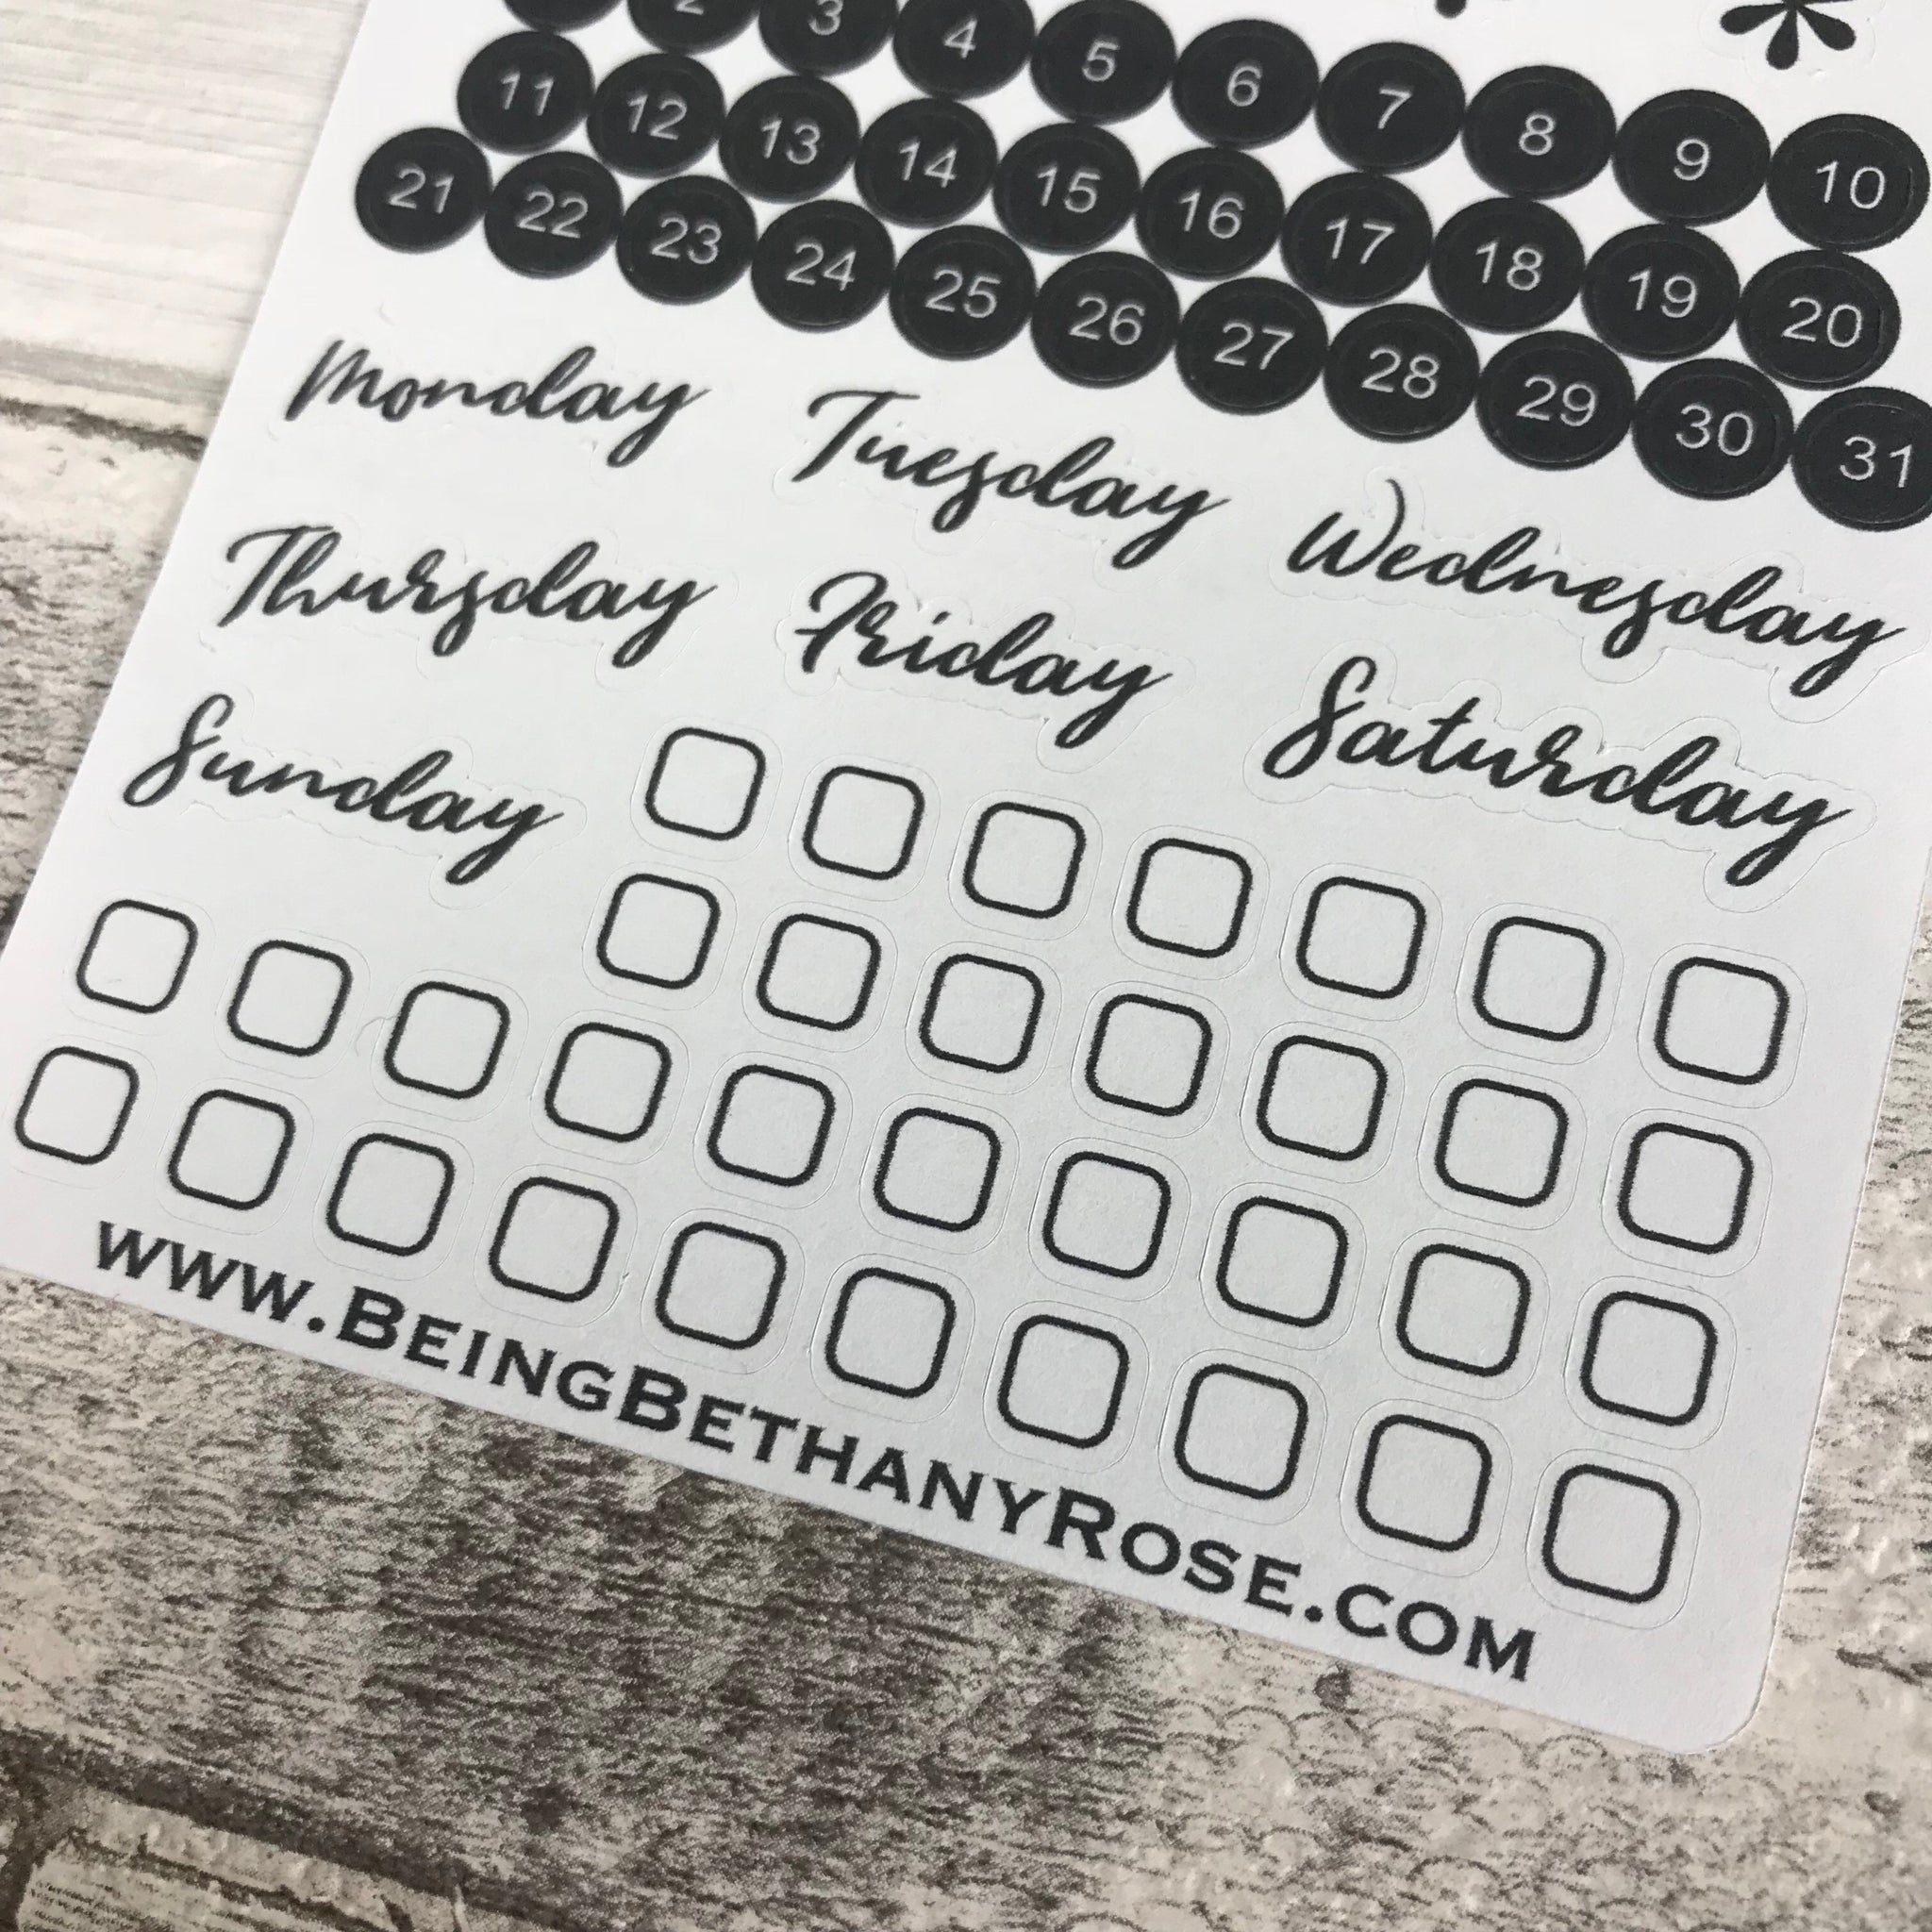 2 3 4 5 6 7 8 9 10
11 12 13 14 15 16 17 18 19 20
21 22 23 24 25 26 27 28 29 30 31
Monday Tuesday Wednesday
Thursday Friday Saturday
Sunday
www.BeingBethanyRose.com